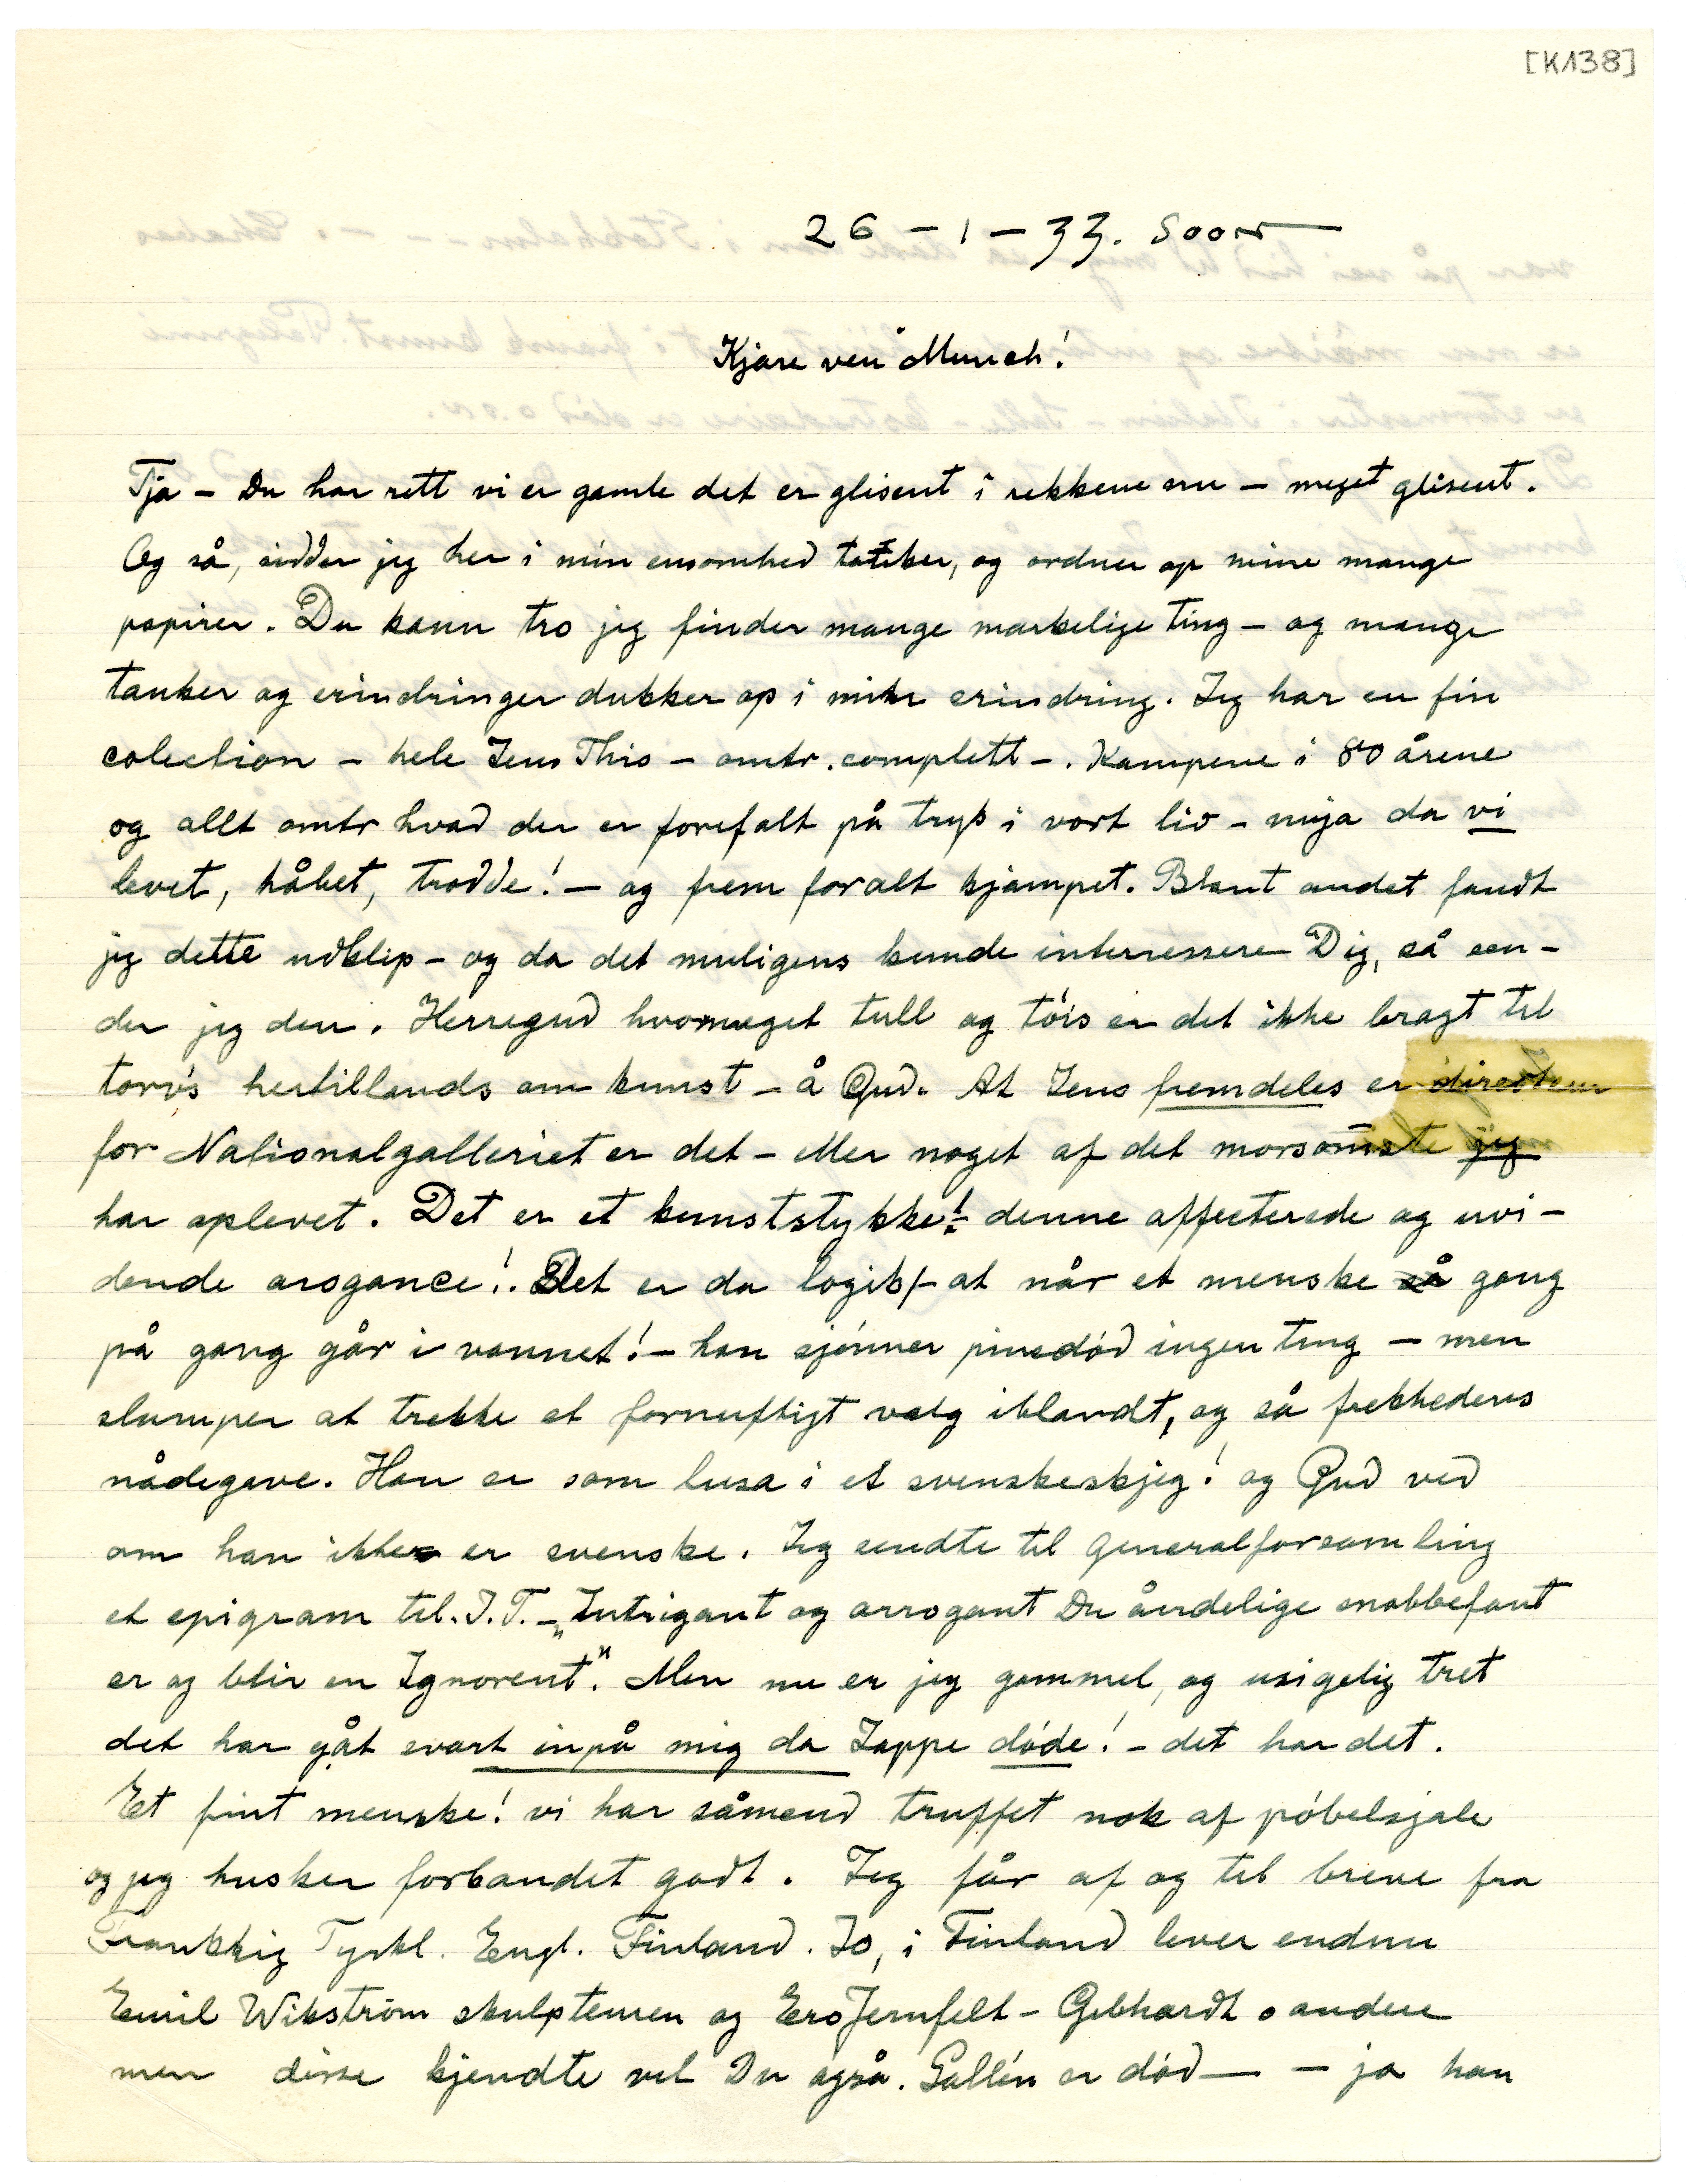 [K138]
26 – 1 – 33. Soon
Kjære ven Munch!
Tja – Du har rett vi er gamle det er glisent i rekkene nu – meget glisent.
Og så, sidder jeg her i min ensomhed tænker, og ordner op mine mange
papirer. Du kann tro jeg finder mange mærkelige ting – og mange
tanker og erindringer dukker op i min erindring. Jeg har en fin
colection – hele Jens This – omtr. complett –. Kampene i 80 årene
og allt omtr hvad der er forefalt på tryk i vort liv – nuja da vi
levet, håbet, trodde! – og frem for alt kjæmpet. Blant andet fandt
jeg dette udklip – og da det muligens kunde interressere Dig, så sen-
der jeg den. Herregud hvormeget tull og tøis er det ikke bragt til
torvs hertillands om kunst – å Gud. At Jens fremdeles er directeur
for Nationalgalleriet er det – eller noget af det morsomste jeg
har oplevet. Det er et kunststykke! – denne affecterede og uvi-
dende arogance!. Det er da logik – at når et menske så gang
på gang går i vannet! – han sjønner pinedød ingen ting – men
slumper at trekke et fornuftigt valg iblandt, og så frekhedens
nådegave. Han er som lusa i et svenskeskjeg! og Gud ved
om han ikke er svenske. Jeg sendte til Generalforsamling
et epigram til. J. T. – „Intrigant og arrogant Du åndelige snobbefant
er og blir en Ignorent". Men nu er jeg gammel, og usigelig tret
det har gåt svært inpå mig da Jappe døde! – det har det.
Et fint menske! vi har såmend truffet nok af pøbelsjæle
og jeg husker forbandet godt. Jeg får af og til breve fra
Frankrig Tyskl. Engl. Finland. Jo, i Finland lever endnu
Emil Wikström skulpteuren og Ero Jernfelt – Gebhardt o andere
men disse kjendte vel Du også. Gallén er død — – ja han